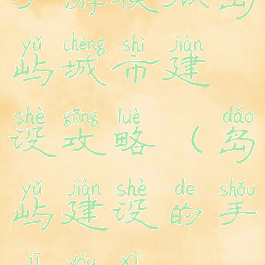 yǔ chéng shì jiàn
屿城市建
shè gōng luè dǎo
设攻略（岛
yǔ jiàn shè de shǒu
屿建设的手
jī yóu xì